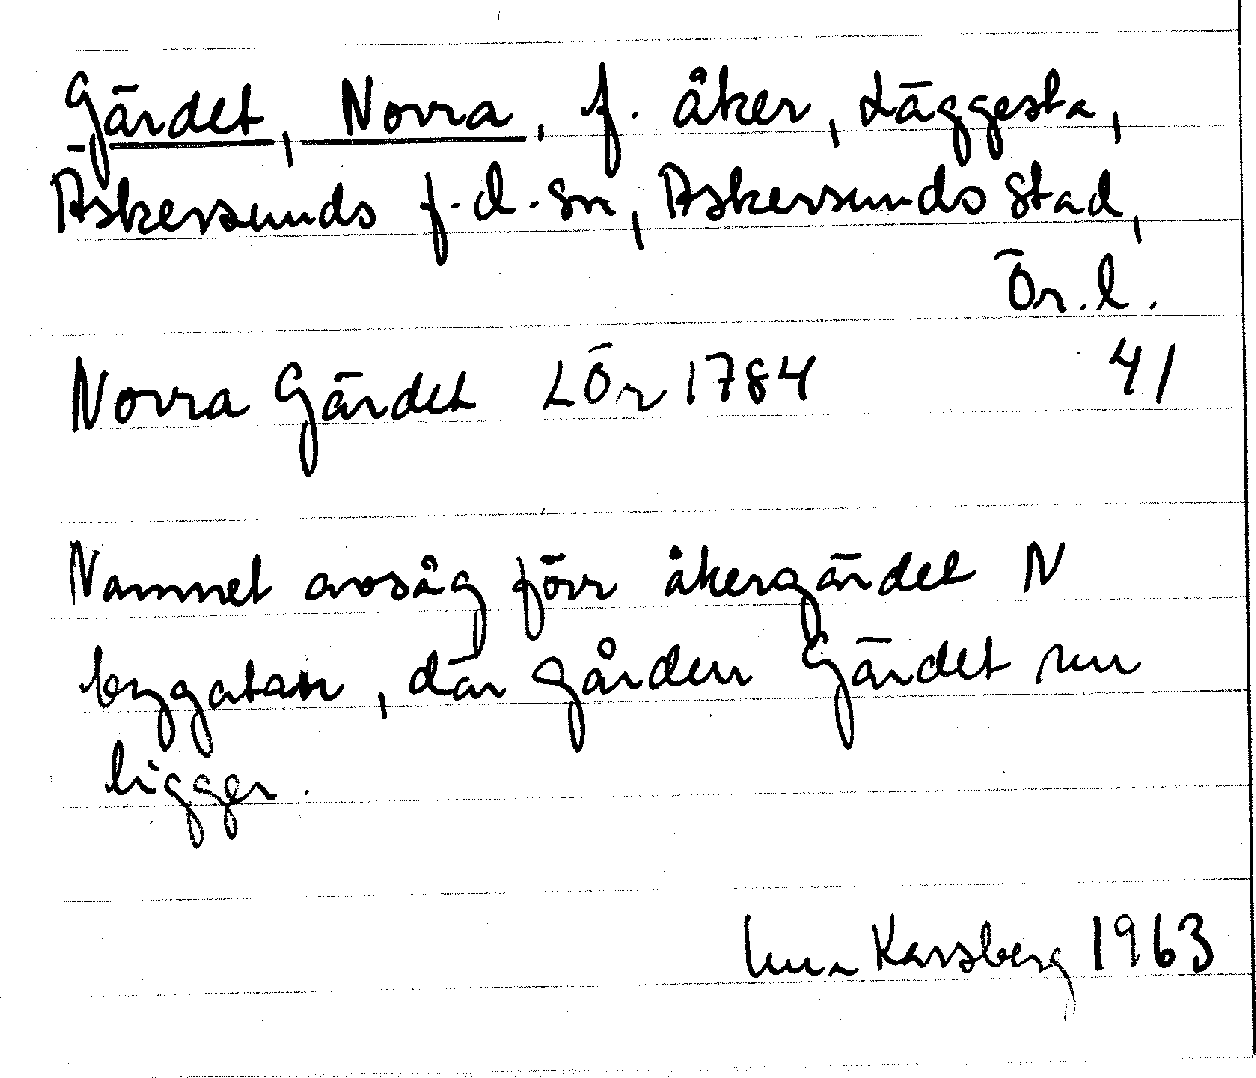 Gärdet, Norra, f. åker, Läggesta,
Askersunds f.d. sn, Askersunds stad,
Ör.l.
Norra Gärdet LÖr 1784 41
Namnet avsåg förr åkergärdet N
bygatan, där gården Gärdet nu
ligger.
Karsberg 1963